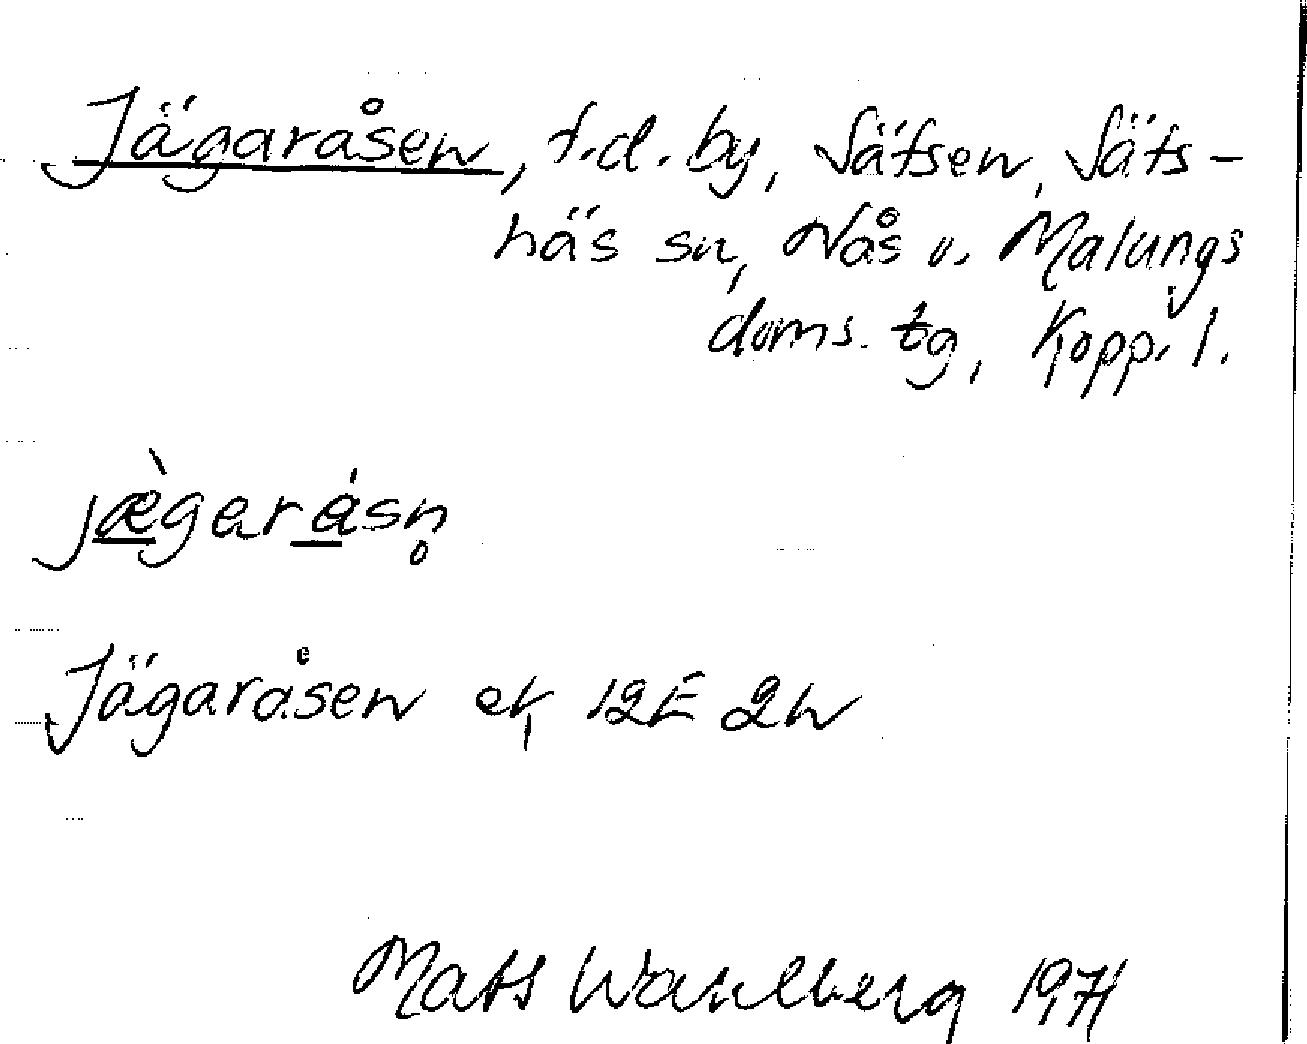 Jägaråsen, f.d. by, Säfsen, Säfs-
näs sn, Nås o. Malungs
doms. tg, Kopp. l.
jæ̀garåsn̥
Jägaråsen ek 12E 2h
Mats Wahlberg 1971